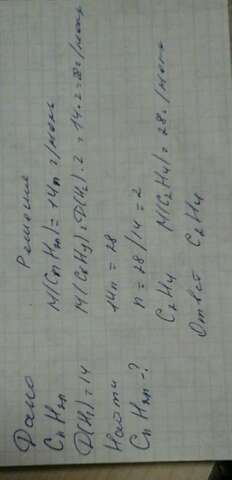 Дано
CnH2n
D(H2)=14
Найти
CnH2n-?
Решение
M(CnH2n)=14n г/моль
M(CxHy)=D(H2)·2=14·2=28г/моль
14n=28
n=28/14=2
C2H4 M(C2H4)=28г/моль
Ответ C2H4